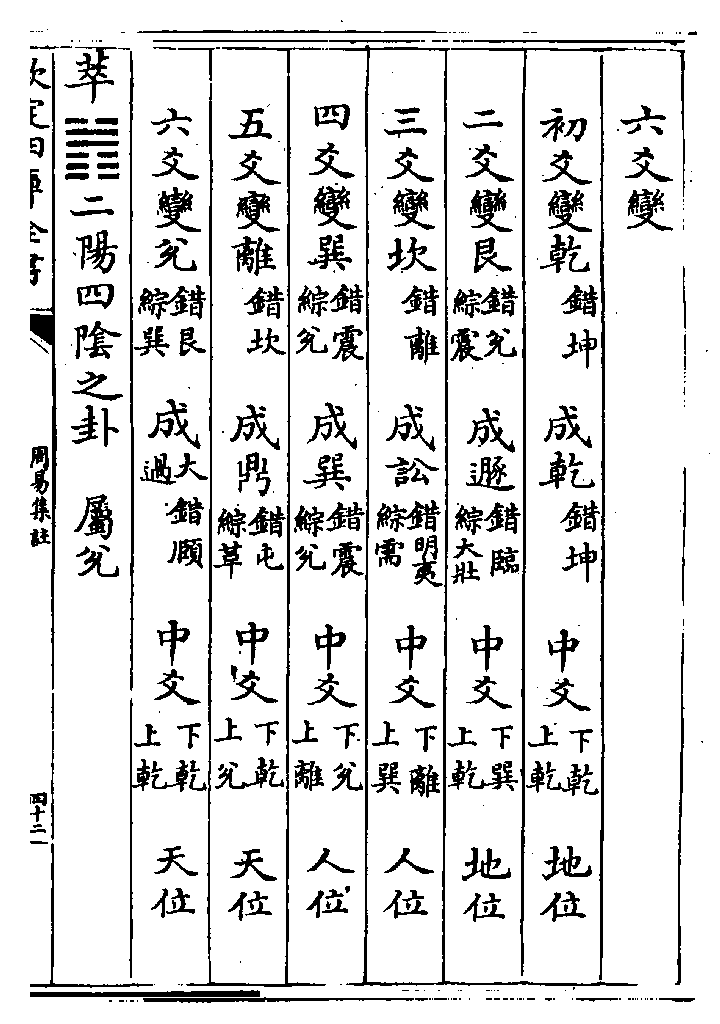 六爻變
初爻變乾 錯坤 成乾 錯坤 中爻 下乾上乾 地位
二爻變艮 錯兊綜震 成遯 錯臨綜大壯 中爻 下巽上乾 地位
三爻變坎 錯離 成訟 錯明夷綜需 中爻 下離上巽 人位
四爻變巽 錯震綜兊 成巽 錯震綜兊 中爻 下兊上離 人位
五爻變離 錯坎 成鼎 錯屯綜革 中爻 下乾上兊 天位
六爻變兊 錯艮綜巽 成大過 錯頤 中爻 下乾上乾 天位
萃䷬二陽四陰之卦 屬兊
欽定四庫全書
周易集註
四十二